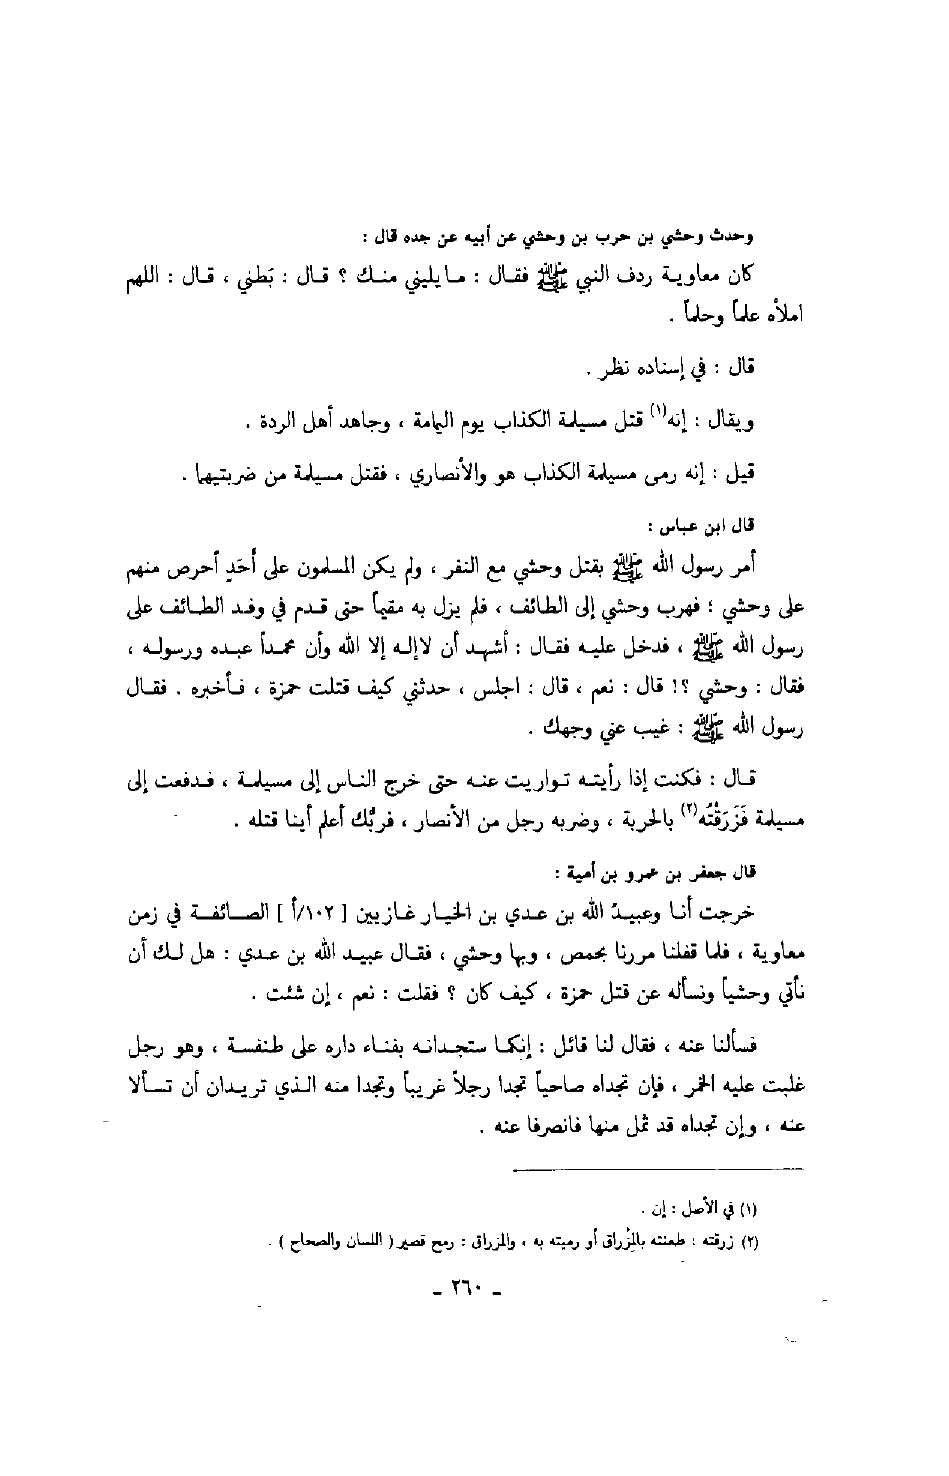 وحدث وحشي بن حرب بن وحشي عن أبيه عن جده قال :
كان معاوية ردف النبي ﷺ فقال : ما يليني منك ؟ قال : بَطني ، قال : اللهم
املأه علماً وحلماً .
قال : في إسناده نظر .
ويقال : إنه(١) قتل مسيلمة الكذاب يوم اليمامة ، وجاهد أهل الردة .
قيل : إنه رمى مسيلمة الكذاب هو والأنصاري ، فقتل مسيلمة من ضربتيهما .
قال ابن عباس :
أمر رسول الله ﷺ بقتل وحشي مع النفر ، ولم يكن المسلمون على أَحَدٍ أحرص منهم
على وحشي ؛ فهرب وحشي إلى الطائف ، فلم يزل به مقيماً حتى قدم في وفد الطائف على
رسول الله ﷺ ، فدخل عليه فقال : أشهد أن لاإله إلا الله وأن محمداً عبده ورسوله ،
فقال : وحشي ؟! قال : نعم ، قال : اجلس ، حدثني كيف قتلت حمزة ، فأخبره . فقال
رسول الله ﷺ : غيب عني وجهك .
قال : فكنت إذا رأيته تواريت عنه حتى خرج الناس إلى مسيلمة ، فدفعت إلى
مسيلمة فَزَرَقْتُه(٢) بالحربة ، وضربه رجل من الأنصار ، فربُّك أعلم أينا قتله .
قال جعفر بن عمرو بن أمية :
خرجت أنا وعبيدُ الله بن عدي بن الخيار غازيين [ ١٠٢/أ ] الصائفة في زمن
معاوية ، فلما قفلنا مررنا بحمص ، وبها وحشي ، فقال عبيد الله بن عدي : هل لك أن
نأتي وحشياً ونسأله عن قتل حمزة ، كيف كان ؟ فقلت : نعم ، إن شئت .
فسألنا عنه ، فقال لنا قائل : إنكما ستجدانه بفناء داره على طنفسة ، وهو رجل
غلبت عليه الخمر ، فإن تجداه صاحياً تجدا رجلاً غريباً وتجدا منه الذي تريدان أن تسألا
عنه ، وإن تجداه قد ثمل منها فانصرفا عنه .
(١) في الأصل : إن .
(٢) زرقته : طعنته بالمِزْراق أو رميته به ، والمزراق : رمح قصير ( اللسان والصحاح ) .
ـ ٢٦٠ ـ